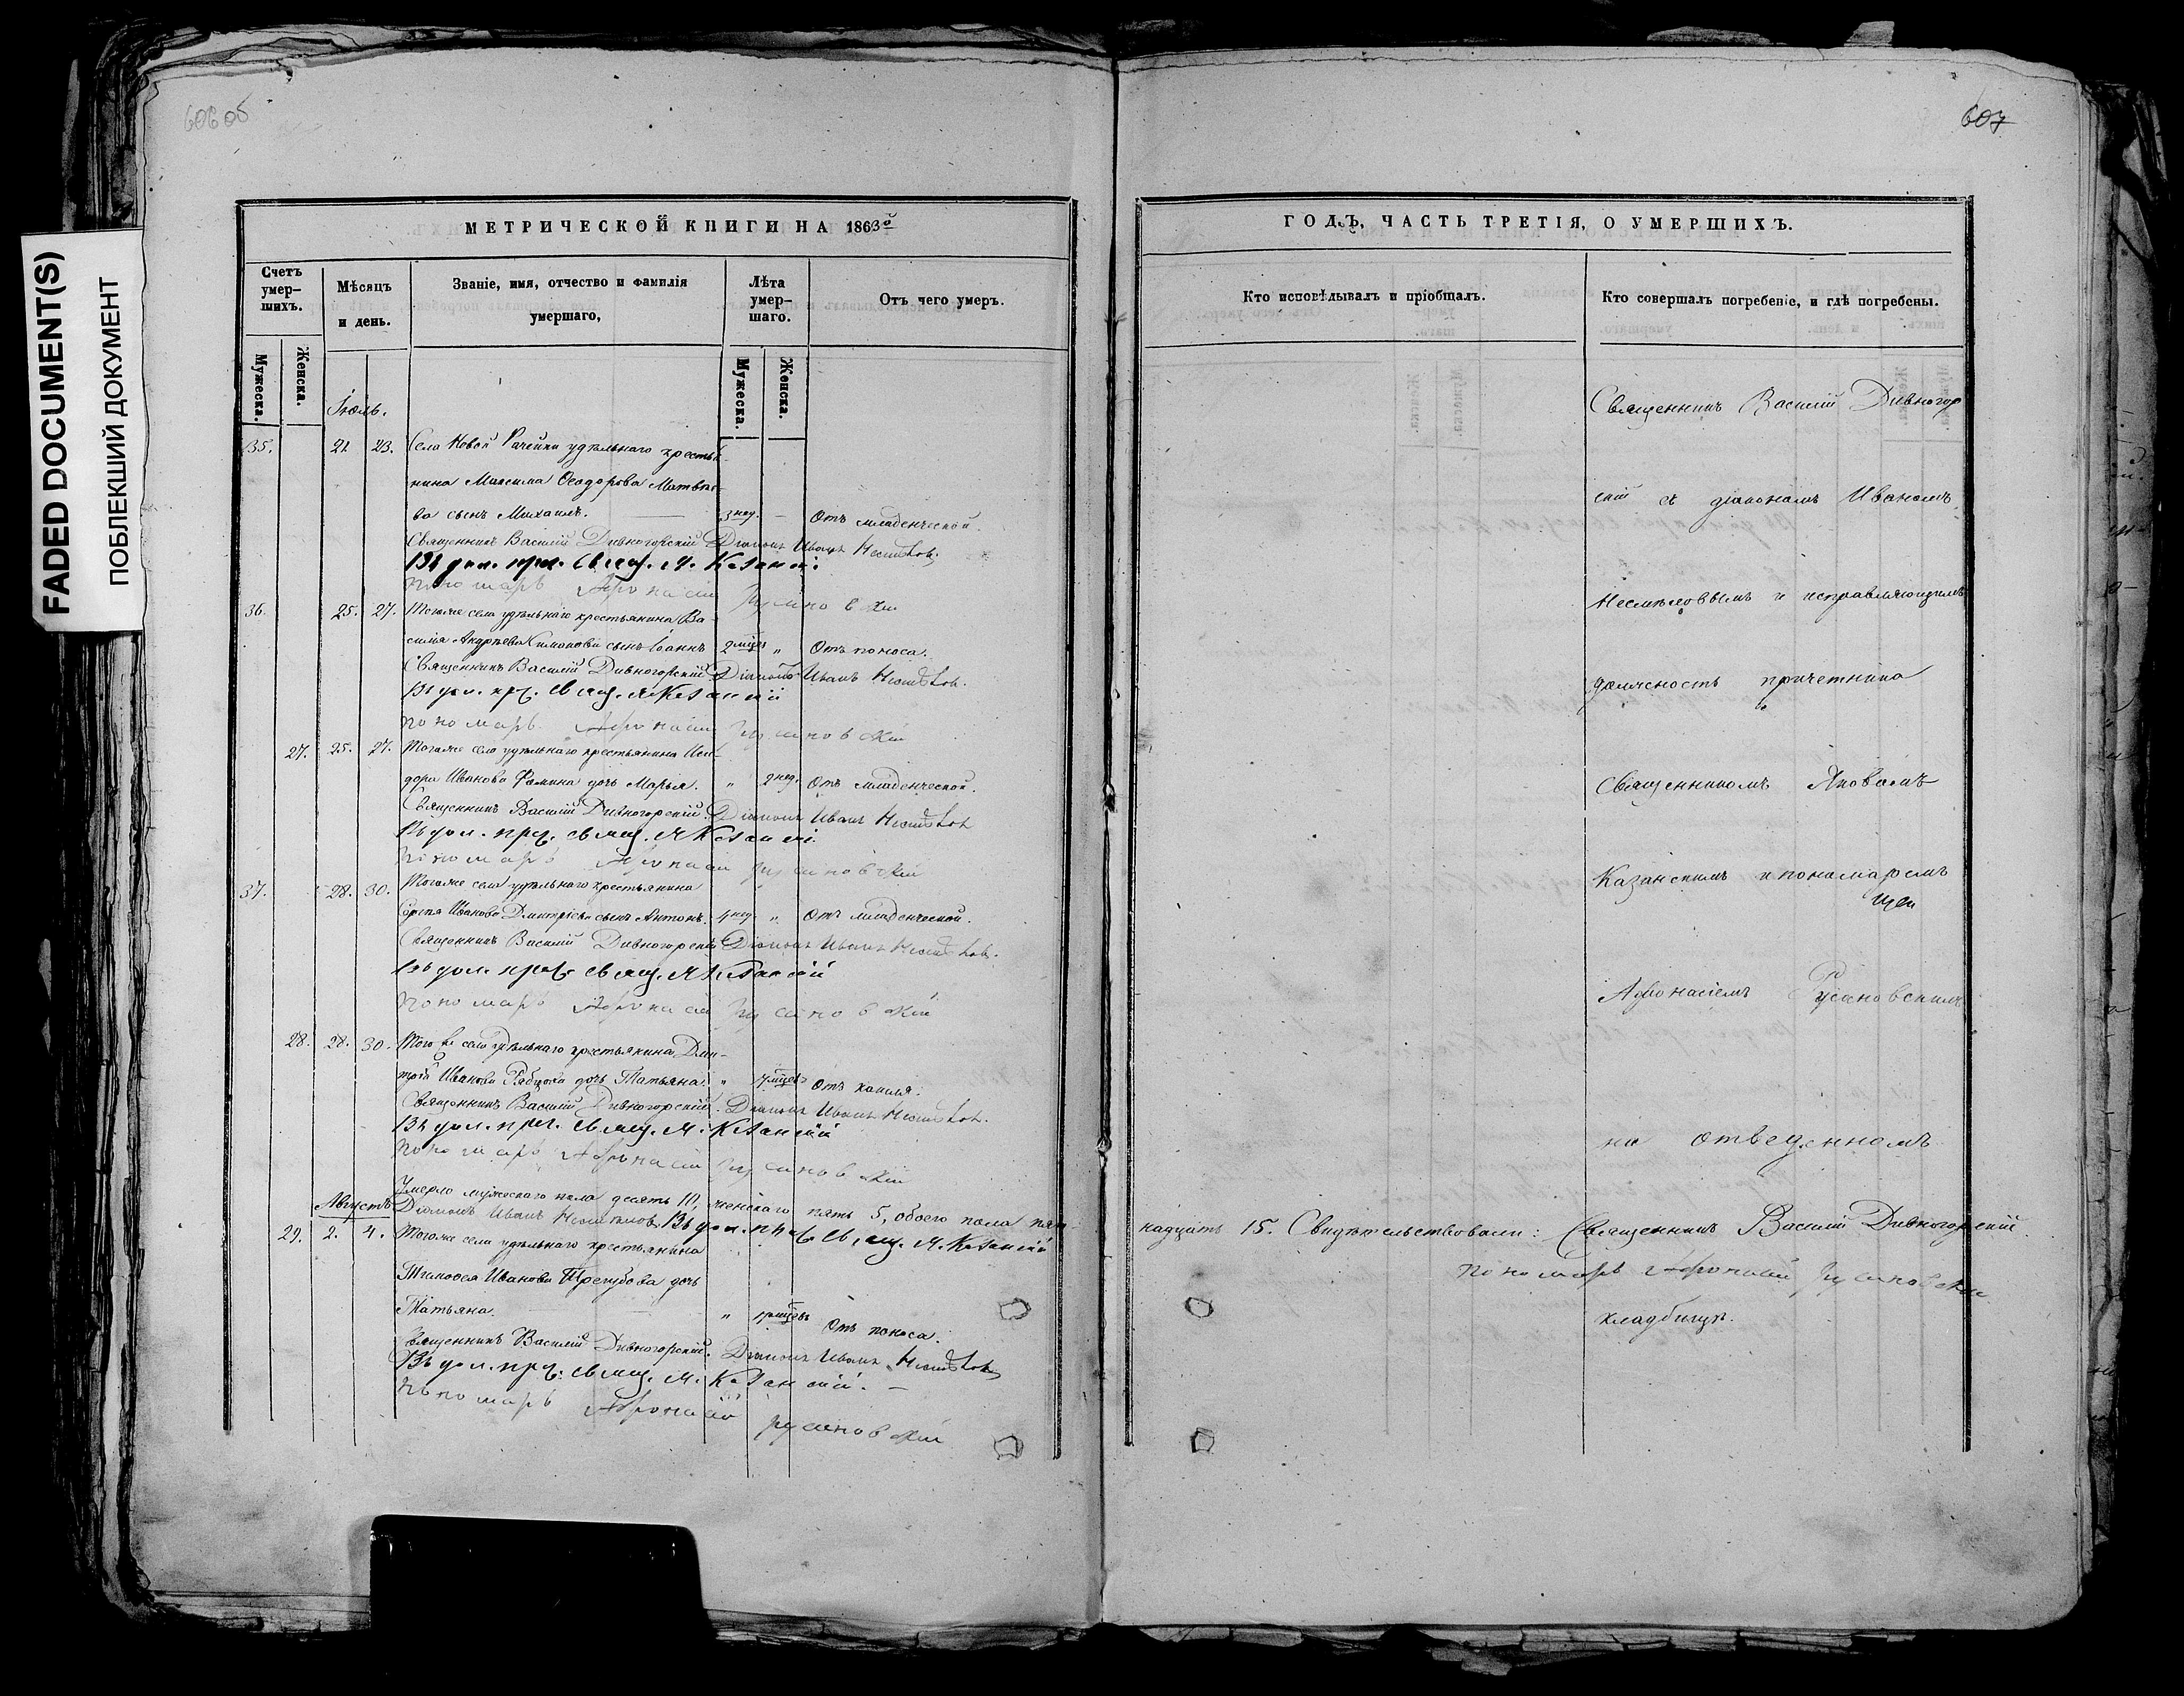 606об
607
FADED DOCUMENT(S)
ПОБЛЕКШИЙ ДОКУМЕНТ
МЕТРИЧЕСКОЙ КНИГИ НА 1863й
Счетъ умер-шихъ.
Мѣсяцъ и день.
Званіе, имя, отчество и фамилія умершаго,
Лѣта умер-шаго.
Отъ чего умеръ.
Мужеска.
Женска.
Мужеска.
Женска.
Іюль.
35. 21 23. Села Новой Рачейки удѣльнаго крестья-
нина Максима Ѳеодорова Матвѣе-
ва сынъ Михаилъ. 3 нед. — Отъ младенческой.
Священникъ Василій Дивногорскій Діаконъ Иванъ Несмѣловъ.
Въ дол. прич. свящ. Я. Казанскій
Пономарь Афонасій Русановскій
36. 25. 27. Тогоже села удѣльнаго крестьянина Ва-
силія Андреева Симонова сынъ Іоаннъ 2 мѣсц. „ Отъ поноса.
Священникъ Василій Дивногорскій Діаконъ Иванъ Несмѣловъ.
Въ дол. прич. свящ. Я. Казанскій
Пономарь Афонасій Русановскій
27. 25. 27. Тогоже села удѣльнаго крестьянина Иси-
дора Иванова Фомина дочь Марья. „ 2 нед. Отъ младенческой.
Священникъ Василій Дивногорскій. Діаконъ Иванъ Несмѣловъ
Въ дол. прич. свящ. Я Казанскій.
Пономарь Афонасій Русановскій
37. 28. 30. Тогоже села удѣльнаго крестьянина
Сергѣя Иванова Дмитріева сынъ Антонъ. 4 нед. „ Отъ младенческой.
Священникъ Василій Дивногорскій Діаконъ Иванъ Несмѣловъ.
Въ дол. прич. свящ. Я Казанскій
Пономарь Афонасій Русановскій
28. 28. 30. Того же села удѣльнаго крестьянина Дми-
трія Иванова Рябцова дочь Татьяна. „ мѣсцевъ Отъ кашля.
Священникъ Василій Дивногорскій. Діаконъ Иванъ Несмѣловъ.
Въ дол. прич. свящ. Я. Казанскій
Пономарь Афонасій Русановскій
Умерло мужескаго пола десять 10, женскаго пять 5, обоего пола пят-
Августъ Діаконъ Иванъ Несмѣловъ. Въ дол. прич. свящ. Я. Казанскій
29. 2. 4. Тогоже села удѣльнаго крестьянина
Тимофея Иванова Трегубова дочь
Татьяна. „ мѣсцевъ Отъ поноса.
Священникъ Василій Дивногорскій. Діаконъ Иванъ Несмѣловъ
Въ дол. прич. свящ. Я. Казанскій. —
Пономарь Афонасій Русановскій
ГОДЪ, ЧАСТЬ ТРЕТІЯ, О УМЕРШИХЪ.
Кто исповѣдывалъ и пріобщалъ.
Кто совершалъ погребеніе, и гдѣ погребены.
Священникъ Василій Дивногор
скій съ діакономъ Иваномъ
Несмѣловымъ и исправляющимъ
должность причетника
священникомъ Яковомъ
Казанскимъ и пономаремъ
Афонасіемъ Русановскимъ
на отведенномъ
надцать 15. Свидѣтельствовали: Священникъ Василій Дивногорскій.
Пономарь Афонасій Русановскій
кладбищѣ.